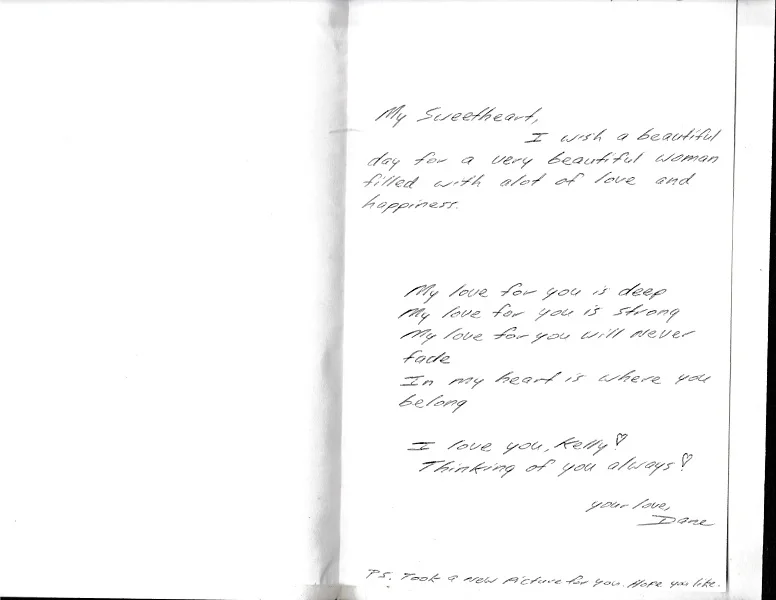 My Sweetheart,
I wish a beautiful
day for a very beautiful woman
filled with alot of love and
happiness.
My love for you is deep
My love for you is strong
My love for you will never
fade
In my heart is where you
belong
I love you, Kelly♡!
Thinking of you always♡!
your love,
Dane
P.S. Took a new picture for you. Hope you like.